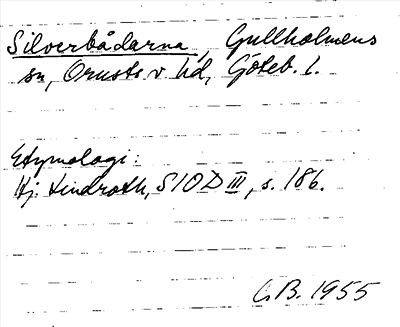 Silverbådarna, Gullholmens
sn, Orusts v. hd, Göteb. l.
Etymologi:
Hj. Lindroth, SIOD III, s. 186.
G.B. 1955